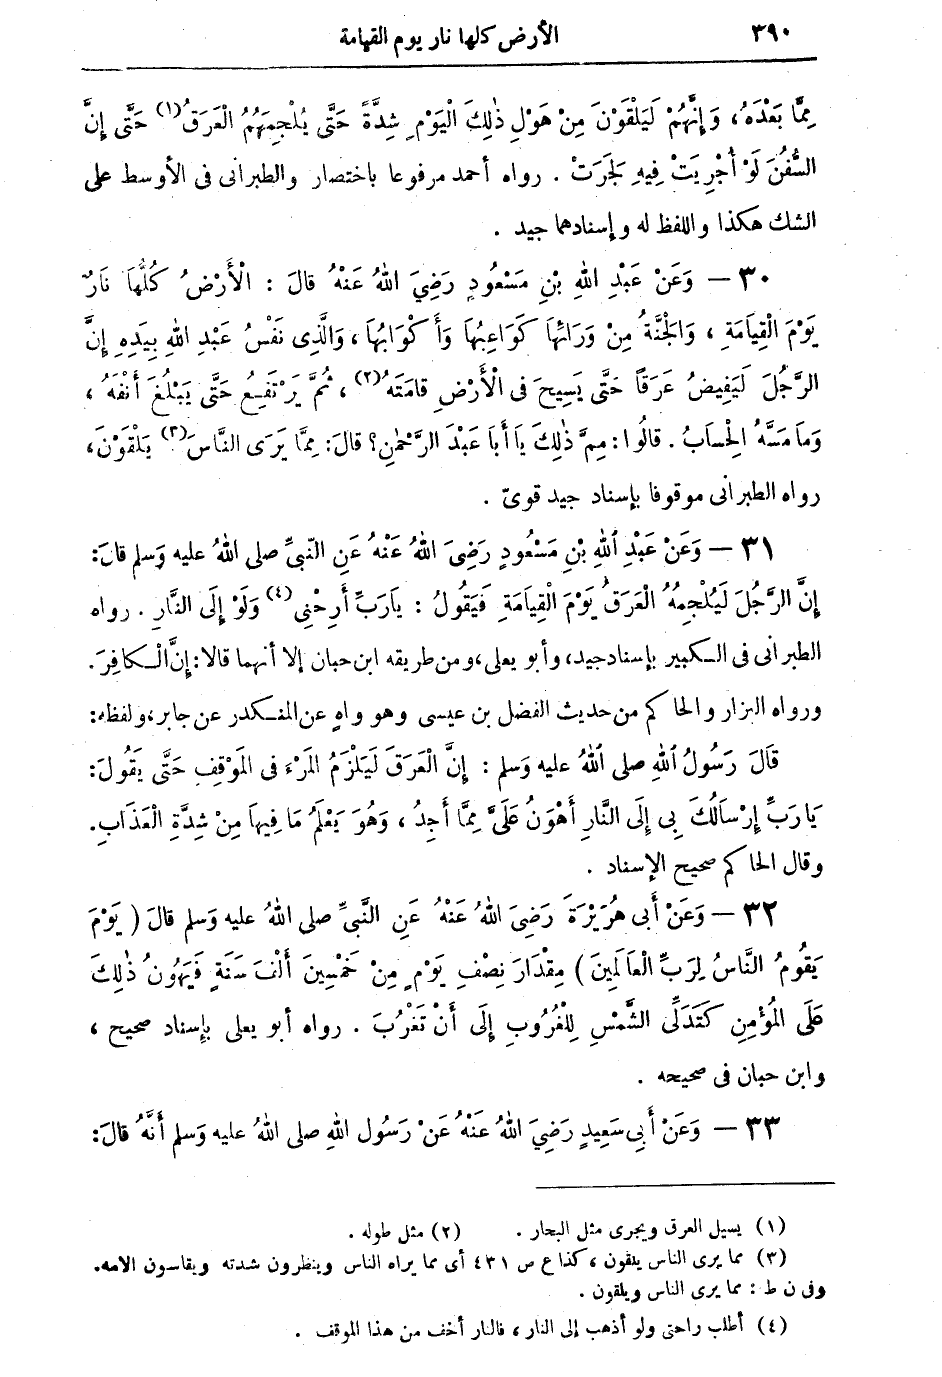 ٣٩٠
الأرض كلها نار يوم القيامة
مِمَّا بَعْدَهُ، وَإِنَّهُمْ لَيَلْقَوْنَ مِنْ هَوْلِ ذٰلِكَ الْيَوْمِ شِدَّةً حَتَّى يُلْجِمَهُمُ الْعَرَقُ(١) حَتَّى إِنَّ
السُّفُنَ لَوْ أُجْرِيَتْ فِيهِ لَجَرَتْ . رواه أحمد مرفوعا باختصار والطبرانى فى الأوسط على
الشك هكذا واللفظ له وإسنادهما جيد .
٣٠ — وَعَنْ عَبْدِ اللهِ بْنِ مَسْعُودٍ رَضِيَ اللهُ عَنْهُ قالَ : الْأَرْضُ كُلُّهَا نَارٌ
يَوْمَ الْقِيَامَةِ ، وَالْجَنَّةُ مِنْ وَرَائِهَا كَوَاعِبُهَا وَأَكْوَابُهَا، وَالَّذِى نَفْسُ عَبْدِ اللهِ بِيَدِهِ إِنَّ
الرَّجُلَ لَيَفِيضُ عَرَقًا حَتَّى يَسِيحَ فى الْأَرْضِ قامَتَهُ(٢)، ثُمَّ يَرْتَفِعُ حَتَّى يَبْلُغَ أَنْفَهُ ،
وَمَا مَسَّهُ الْحِسَابُ . قالُوا : مِمَّ ذٰلِكَ يَا أَبَا عَبْدَ الرَّحْمٰنِ؟ قالَ: مِمَّا يَرَى النَّاسَ(٣) يَلْقَوْنَ،
رواه الطبرانى موقوفا بإسناد جيد قوىّ .
٣١ — وَعَنْ عَبْدِ اللهِ بْنِ مَسْعُودٍ رَضِيَ اللهُ عَنْهُ عَنِ النَّبِىِّ صلى اللهُ عليه وَسلم قالَ:
إِنَّ الرَّجُلَ لَيُلْجِمُهُ الْعَرَقُ يَوْمَ الْقِيَامَةِ فَيَقُولُ : يَارَبِّ أَرِحْنِى(٤) وَلَوْ إِلَى النَّارِ . رواه
الطبرانى فى الـكبير بإسناد جيد، وأبو يعلى، ومن طريقه ابن حبان إلا أنهما قالا: إِنَّ الْـكَافِرَ.
ورواه البزار والحاكم من حديث الفضل بن عيسى وهو واهٍ عن المنـكدر عن جابر، ولفظه:
قَالَ رَسُولُ اللهِ صلى اللهُ عليه وَسلم : إِنَّ الْعَرَقَ لَيَلْزَمُ المَرْءَ فى المَوْقِفِ حَتَّى يَقُولَ:
يَارَبِّ إِرْسَالُكَ بِى إِلَى النَّارِ أَهْوَنُ عَلَىَّ مِمَّا أَجِدُ ، وَهُوَ يَعْلَمُ مَا فِيهَا مِنْ شِدَّةِ الْعَذَابِ.
وقال الحاكم صحيح الإسناد .
٣٢ — وَعَنْ أَبِى هُرَيْرَةَ رَضِيَ اللهُ عَنْهُ عَنِ النَّبِىِّ صلى اللهُ عليه وَسلم قالَ ( يَوْمَ
يَقُومُ النَّاسُ لِرَبِّ الْعَالَمِينَ ) مِقْدَارَ نِصْفِ يَوْمٍ مِنْ خَمْسِينَ أَلْفَ سَنَةٍ فَيَهُونُ ذٰلِكَ
عَلَى المُؤْمِنِ كَتَدَلِّى الشَّمْسِ لِلْغُرُوبِ إِلَى أَنْ تَغْرُبَ . رواه أبو يعلى بإسناد صحيح ،
وابن حبان فى صحيحه .
٣٣ — وَعَنْ أَبِى سَعِيدٍ رَضِيَ اللهُ عَنْهُ عَنْ رَسُولِ اللهِ صلى اللهُ عليه وَسلم أَنَّهُ قالَ:
(١) يسيل العرق ويجرى مثل البحار . (٢) مثل طوله .
(٣) مما يرى الناس يلقون ، كذا ع ص ٤٣١ أى مما يراه الناس وينظرون شدته ويقاسون الامه.
وفى ن ط : مما يرى الناس ويلقون .
(٤) أطلب راحتى ولو أذهب إلى النار ، فالنار أخف من هذا الموقف .